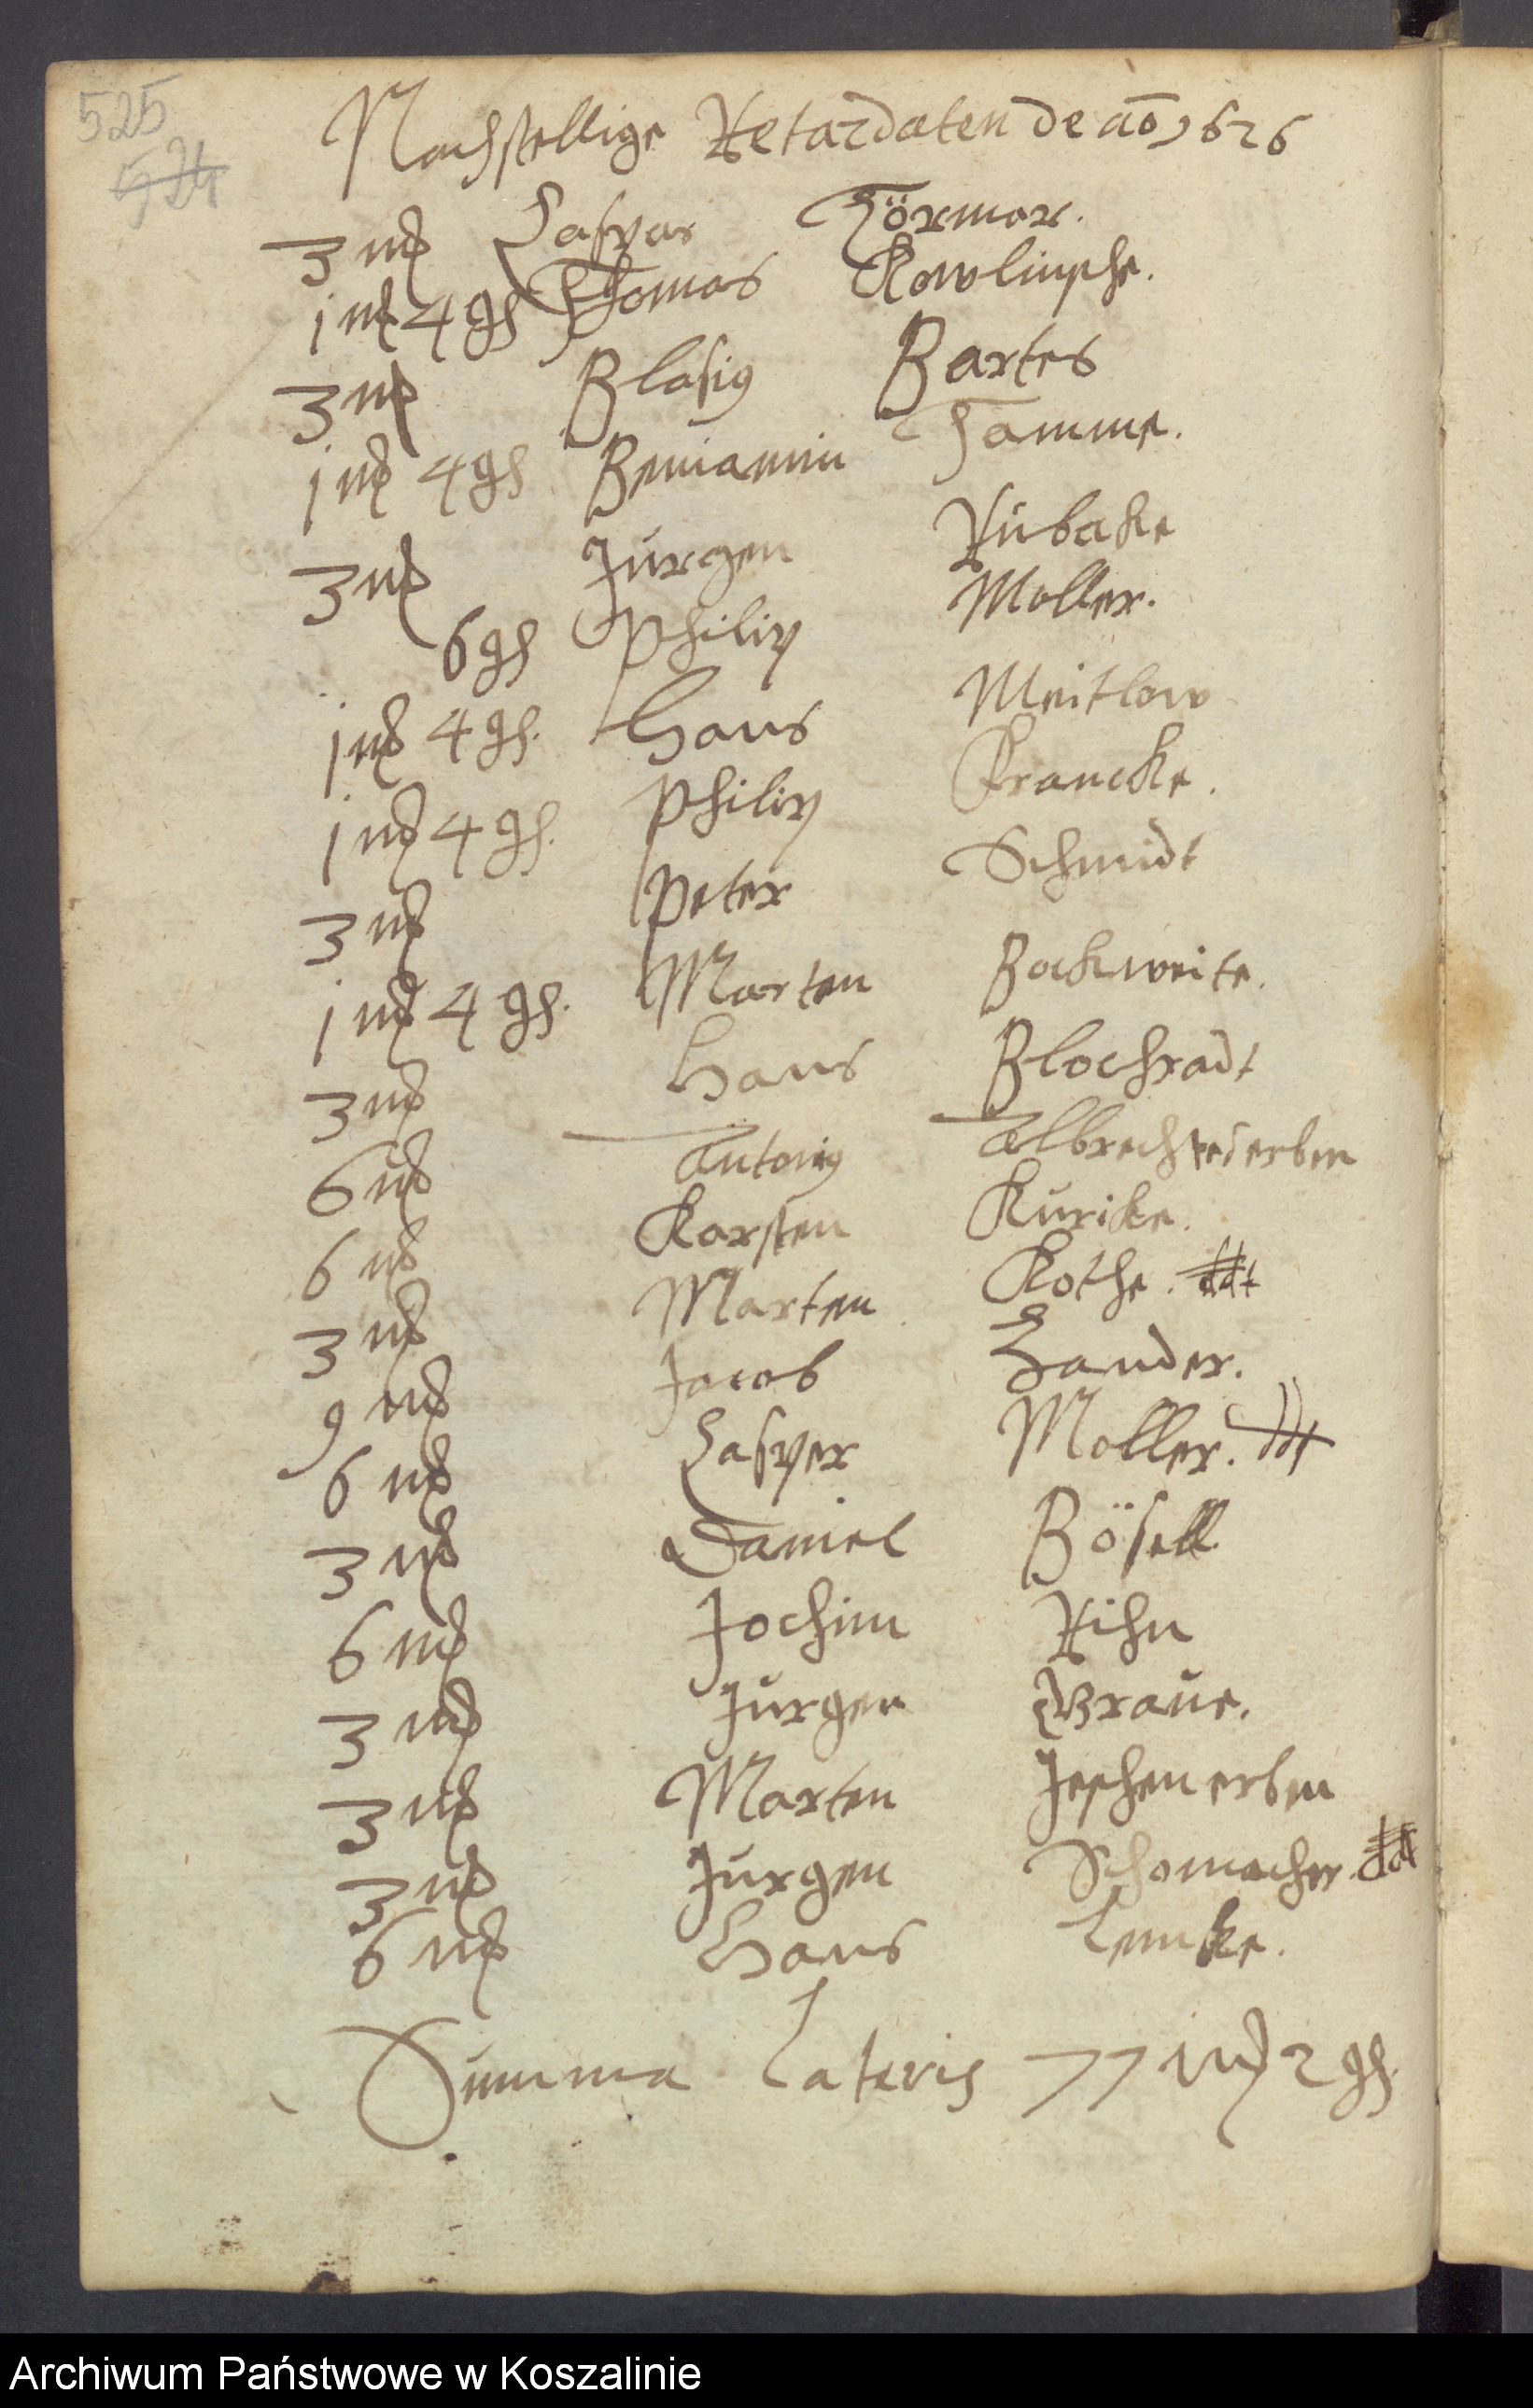 525
524
Nachstellige Retardaten de aō 1626
3 mk Caspar Törmar.
1 mk 4 gs Thomas Kowlinsche.
3 mk Blasius Bartes
1 mk 4 gs Beniamin Tamme.
3 mk Jürgen Rübake
6 gs Philip Moller.
1 mk 4 gs. Hans Meitlow
1 mk 4 gs. Philip Francke.
3 mk Peter Schmidt
1 mk 4 gs. Marten Bockweite.
3 mk Hans Blochradt
6 mk Antonius Albrechtes erben
6 mk Karsten Kürike.
3 mk Marten Kothe. ddt
9 mk Jacob Zander.
6 mk Casper Moller. ddt
3 mk Daniel Bösell
6 mk Jochim Rihn
3 mk Jürgen Braue.
3 mk Marten Jeschen erben
3 mk Jürgen Schomacher. ddt
6 mk Hans Lemke.
Summa Lateris 77 mk 2 gs.
Archiwum Państwowe w Koszalinie